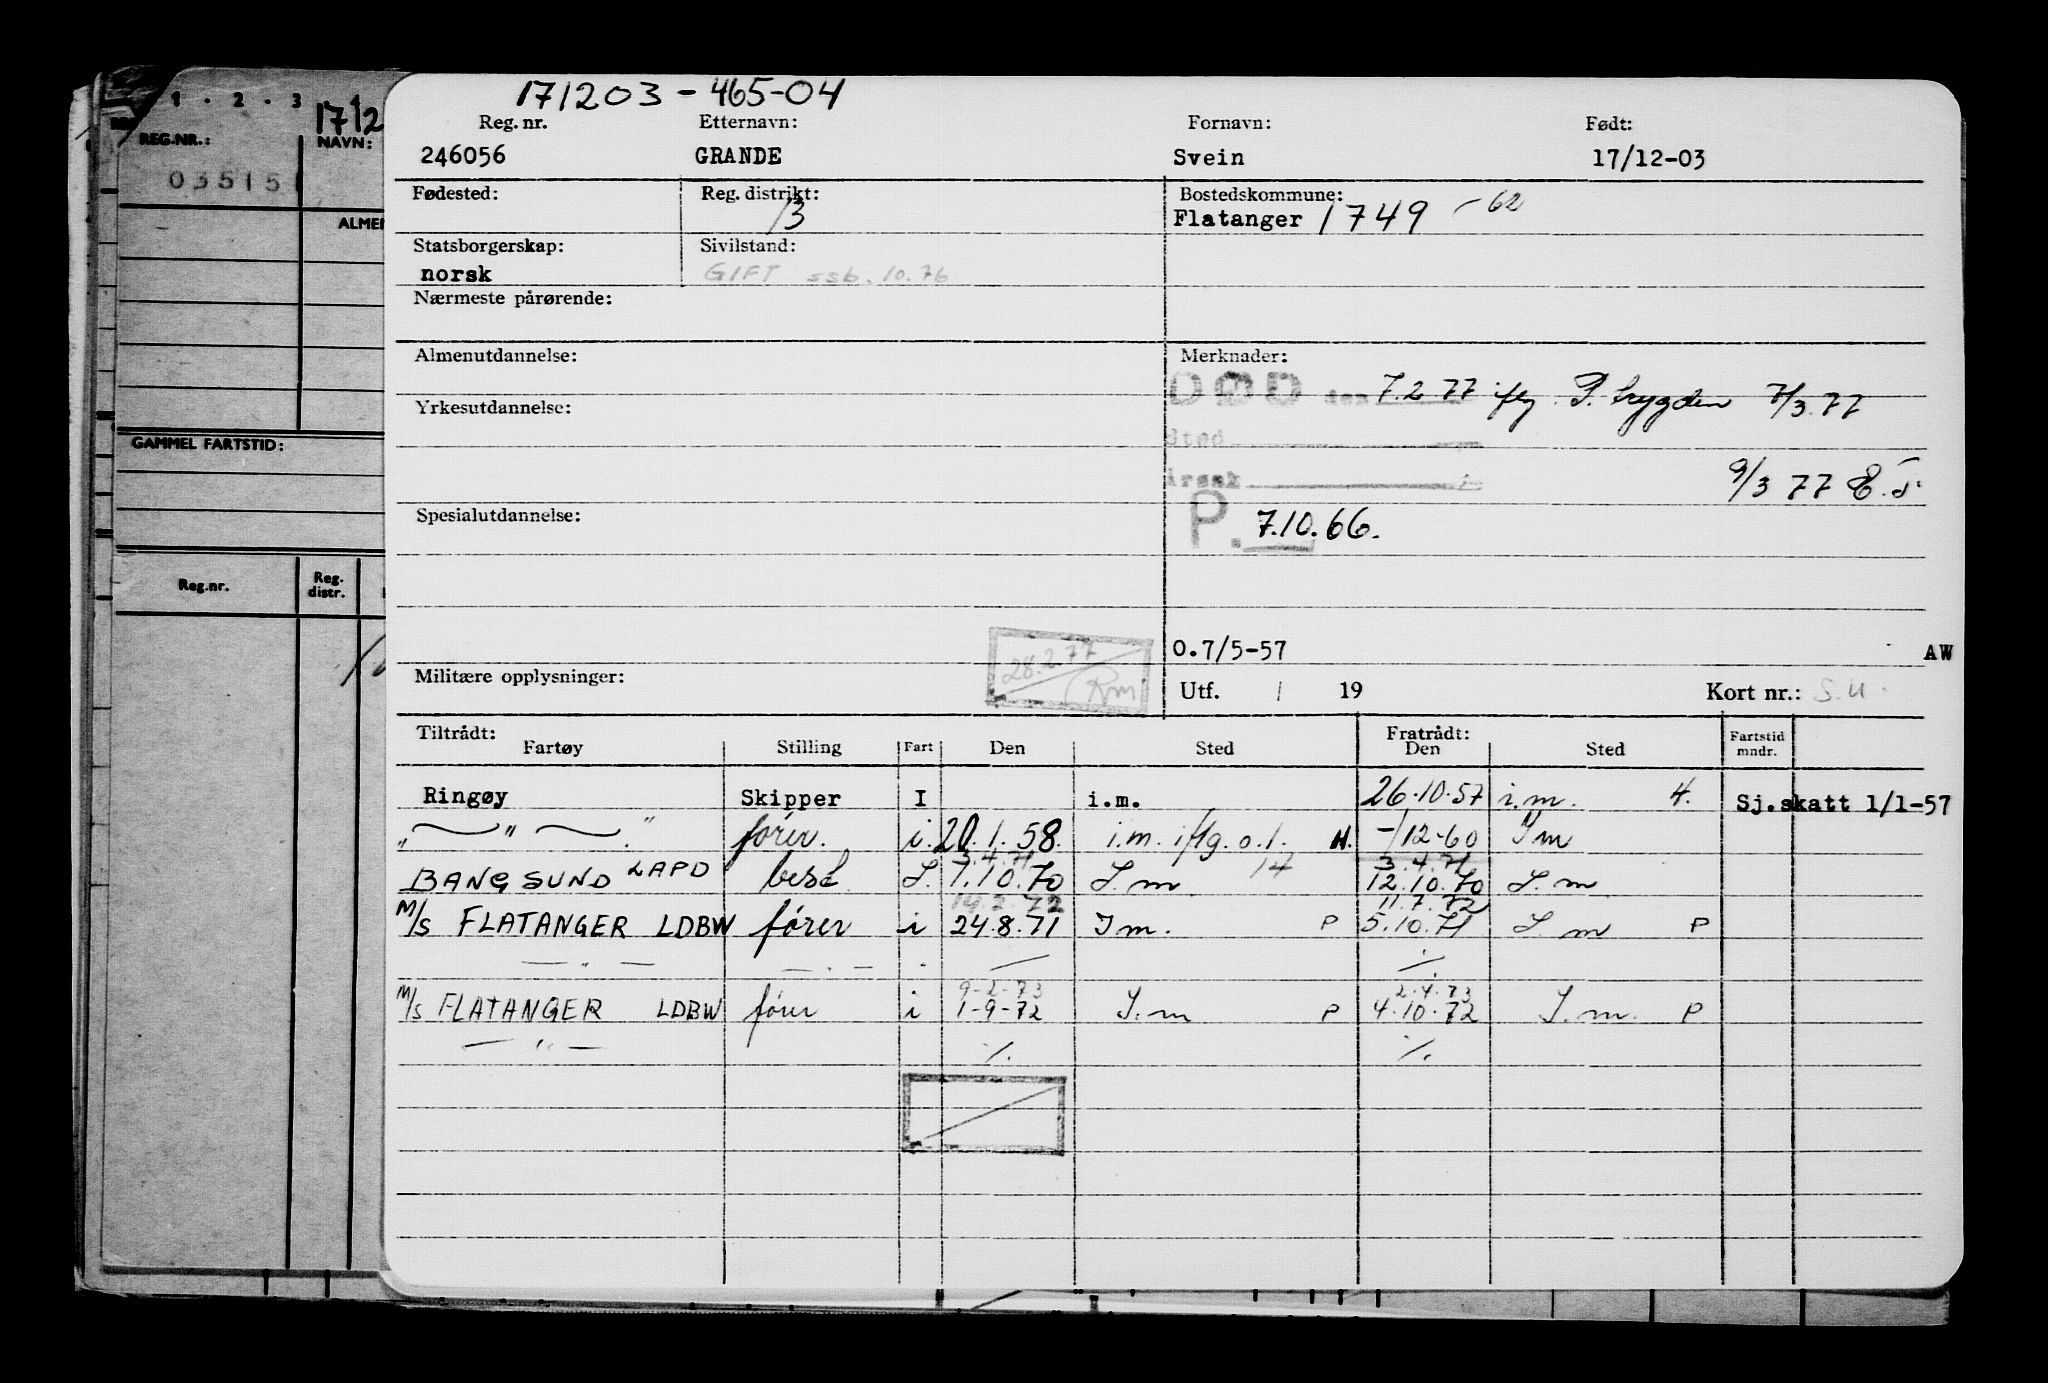 171203 - 465-04
1 . 2 . 3
1712
REG.NR.:
NAVN:
035151
ALMEN
GAMMEL FARTSTID:
Reg.nr.
Reg. distr.
Reg. nr. Etternavn: Fornavn: Født:
246056 GRANDE Svein 17/12-03
Fødested: Reg. distrikt: Bostedskommune:
13 Flatanger 1749 - 62
Statsborgerskap: Sivilstand:
norsk GIFT ssb. 10.76
Nærmeste pårørende:
Almenutdannelse: Merknader:
DØD den 7.2 77 iflg. P. trygden 7/3.77
Yrkesutdannelse:
Sted
Årsak 9/3 77 E.T.
Spesialutdannelse: P. 7.10.66.
O.7/5-57 AW
28.2.77
Rm
Militære opplysninger: Utf. / 19 Kort nr.: S.U.
Tiltrådt: Fratrådt:
Fartøy Stilling Fart Den Sted Den Sted Fartstid mndr.
Ringøy Skipper I i.m. 26.10.57 i.m. 4. Sj.skatt 1/1-57
" " " fører. i. 20.1.58. i.m. iflg. o.l. H. -/12-60 I m
3.4.71 14 3.4.71
BANGSUND LAPD best L. 7.10.70 L.m 12.10.70 L.m
14.2.72 11.7.72
M/S FLATANGER LDBW fører i 24.8.71 I m. P 5.10.71 I. m P
— " — — " — " ⁒ ⁒
9-2-73 2.4.73
M/S FLATANGER LDBW fører i 1-9-72 I.m P 4.10.72 I.m. P
— " — ⁒ ⁒